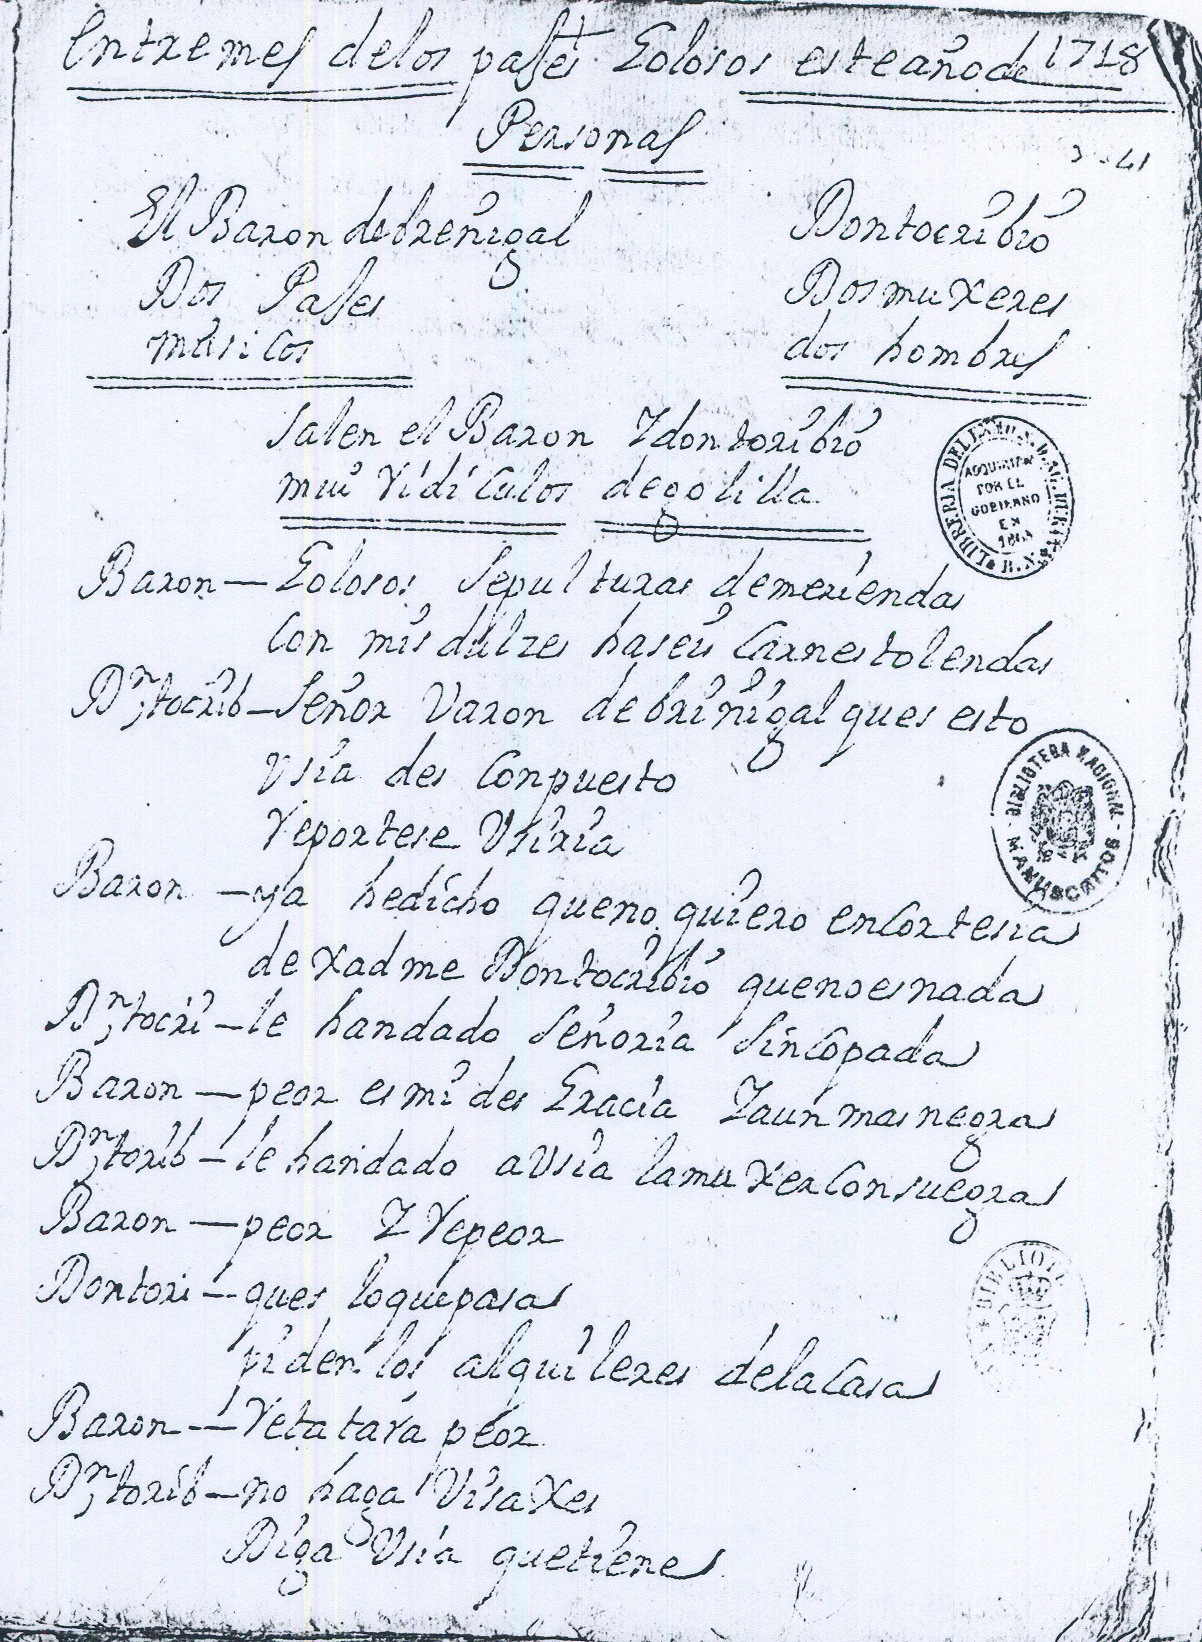 entremes de los pajes Golosos este año de 1718
Personas
El Baron de breñigal
Dos Pajes
musicos
Don toribio
Dos muxeres
dos hombres
salen el Baron Y don toribio
mui ridiculos de golilla
Baron — Golosos sepulturas de meriendas
con mis dulzes haseis carnestolendas
Dn torib — señor varon de briñigal ques esto
Vsia des conpuesto
reportese Vsiria
Baron — ya he dicho que no quiero en cortesia
dexadme Don toribio que no es nada
Dn tori — le han dado señoria sincopada
Baron — peor es mi des Gracia Y aun mas negra
Dn torib — le han dado a Vsia la muxer con suegra
Baron — peor Y repeor
Don tori — ques lo que pasa
piden los alquileres de la casa
Baron — retatara peor
Dn torib — no haga visaxes
Diga Vsia que tiene
LIBRERIA DEL EXMO S. D. AG. DURAN
ADQUIRIDA
POR EL
GOBIERNO
EN
1863
B. N.
BIBLIOTECA NACIONAL
MANUSCRITOS